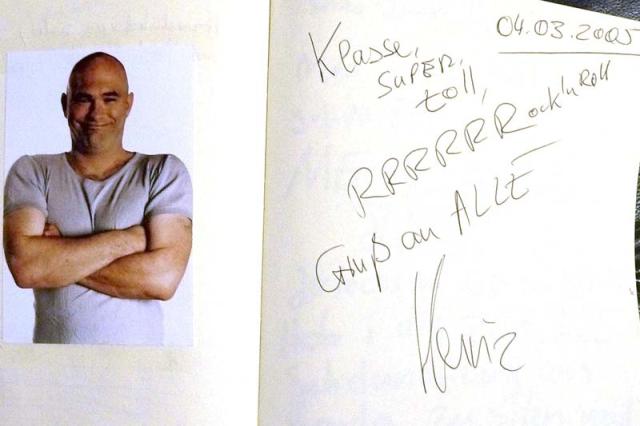 04.03.2005
Klasse,
SUPER,
toll,
RRRRRRock'n Roll
Gruß an ALLE
Heinz